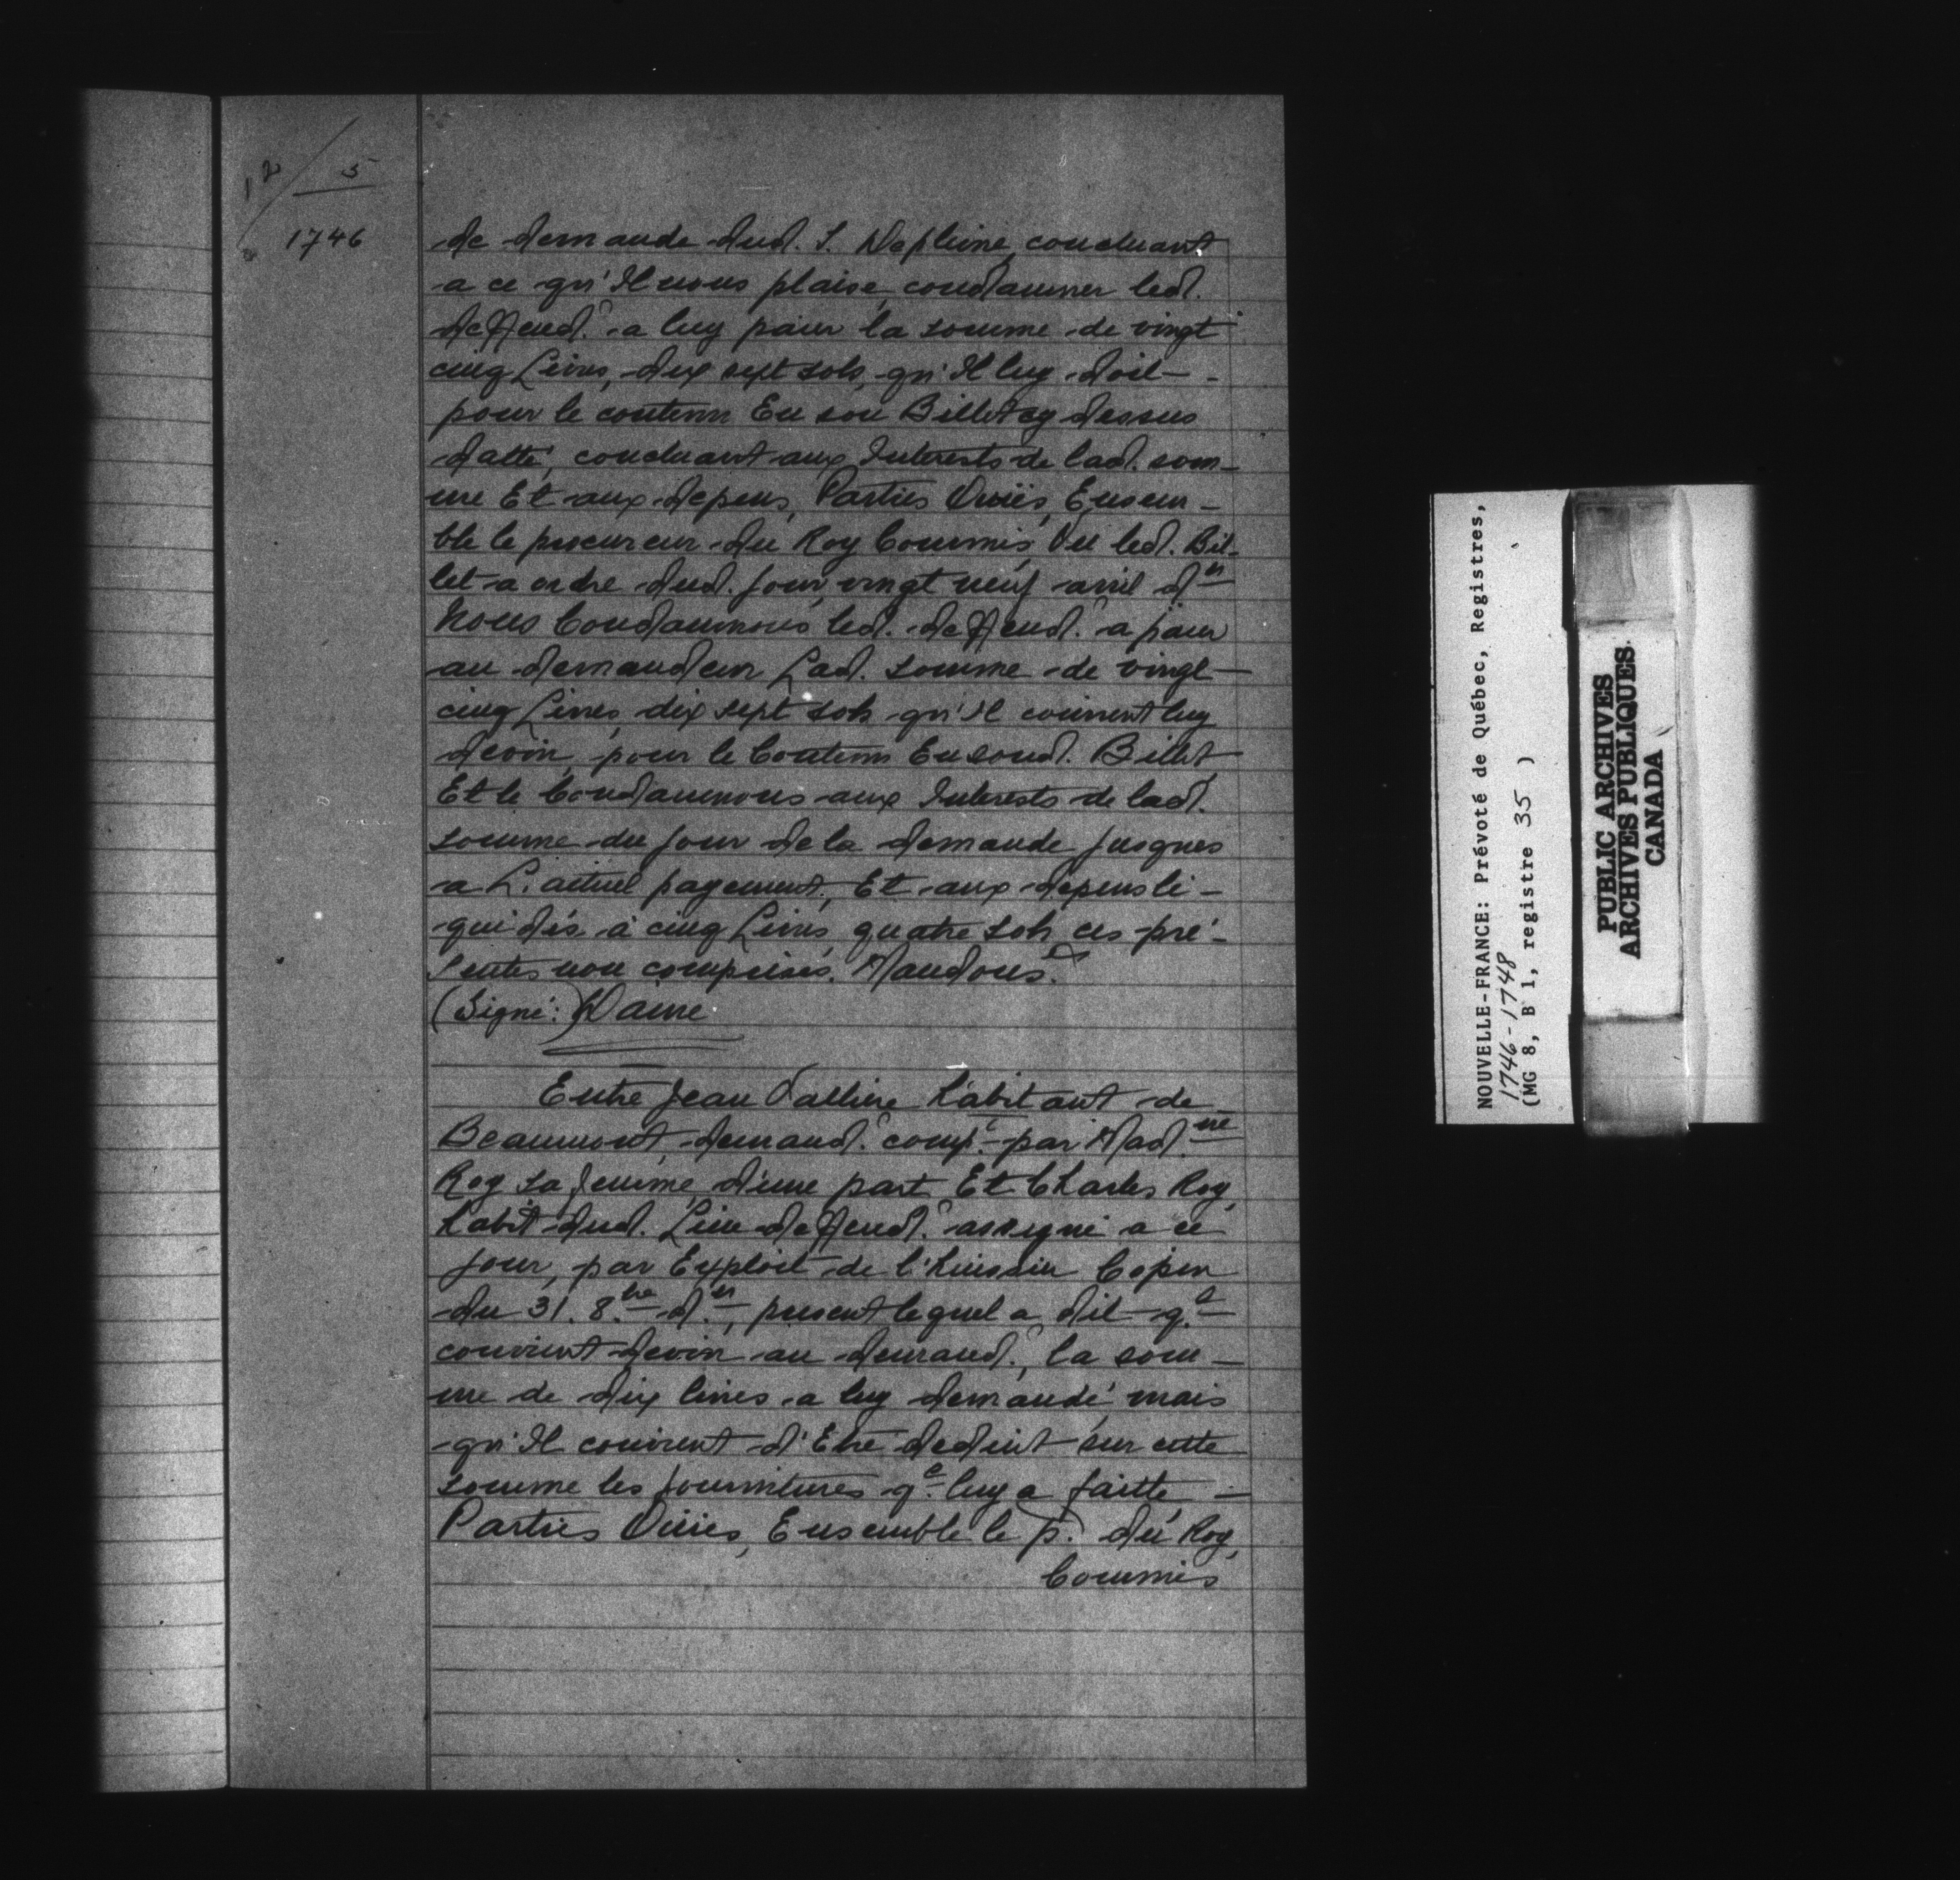 12/5
1746
de demande dud. S. Nepline, concluant
a ce qu'Il nous plaise condamner led.
deffend.r a luy païer la somme de vingt
cinq Livres, dix sept sols, qu'Il luy doit —
pour le contenu En son Billet cy dessus
datté, concluant aux Interests de lad. som-
me Et aux depens, Parties Ouïes, Ensem-
ble le procureur du Roy Commis, Vu led. Bil-
let a ordre dud. Jour vingt neuf avril d.er
Nous Condamnons led. deffend.r a païer
au demandeur Lad. somme de vingt —
cinq Livres dix sept sols qu'Il convient luy
devoir, pour le Contenu En sond. Billet,
Et le Condamnons aux Interests de lad.
somme du Jour de la demande Jusques
a L'actuel payement, Et aux depens li-
quidés à cinq Livres quatre sols ces pré-
sentes non comprises. Mandons &.
(Signé:) Daine
Entre Jean Vallière habitant de
Beaumont, demand.r comp.t par Mad.ne
Roy sa femme d'une part Et Charles Roy,
habit dud. Lieu deffend.r assigné a ce
Jour, par Exploit de l'huissier Copin
du 31. 8.bre d.er, present lequel a dit q.e
convient devoir au demand.r, la som-
me de dix livres a luy demandé mais
qu'Il convient d'Etre deduit sur cette
somme les fournitures q.e luy a faitte —
Parties Ouies, Ensemble le p.r du Roy,
Commis
NOUVELLE-FRANCE: Prévoté de Québec, Registres,
1746-1748
(MG 8, B 1, registre 35 )
PUBLIC ARCHIVES
ARCHIVES PUBLIQUES
CANADA